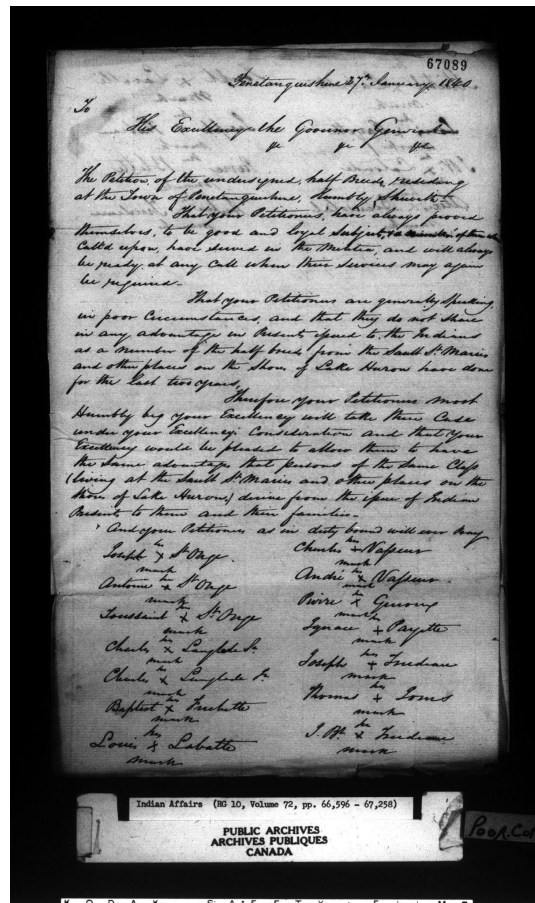 67089
Penetanguishine 27th January 1840.
To
His Excellency the Govonor General
&c &c &c
The Petition of the undersigned, half Breeds, residing
at the Town of Penetanguishine, Humbly Sheweth.
That your Petitioners, have always proved
themselves, to be good and loyal Subjects, & a number of them when
call'd upon, have served in the Militia, and will always
be ready at any call when their services may again
be required.
That your Petitioners are generally speaking
in poor Circumstances, and that they do not share
in any advantage in Presents issued to the Indians
as a number of the half breeds from the Sault St. Maries
and other places on the Shores of Lake Huron have done
for the last two years.
Therefore your Petitioners most
Humbly beg your Excellency will take their Case
under your Excellency's Consideration and that your
Excellency would be pleased to allow them to have
the same advantages that persons of the same Class
(living at the Sault St. Maries and other places on the
Shores of Lake Huron,) derive from the issue of Indian
Presents to them and their families.
And your Petitioners as in duty bound will ever Pray
Joseph his x mark St Onge
Charles his + mark Vasseur
Antoine his x mark St Onge
André his x mark Vasseur
Toussaint his x mark St Onge
Pierre his x mark Giroux
Charles his x mark Langlade Sr.
Ignace his + mark Payette
Charles his x mark Langlade Jr.
Joseph his + mark Trudeau
Baptist his x mark Frichette
Thomas his + mark
Louis his x mark Labatte
J. Bt. his x mark Trudeau
Indian Affairs (RG 10, Volume 72, pp. 66,596 - 67,258)
PUBLIC ARCHIVES
ARCHIVES PUBLIQUES
CANADA
POOR.CO